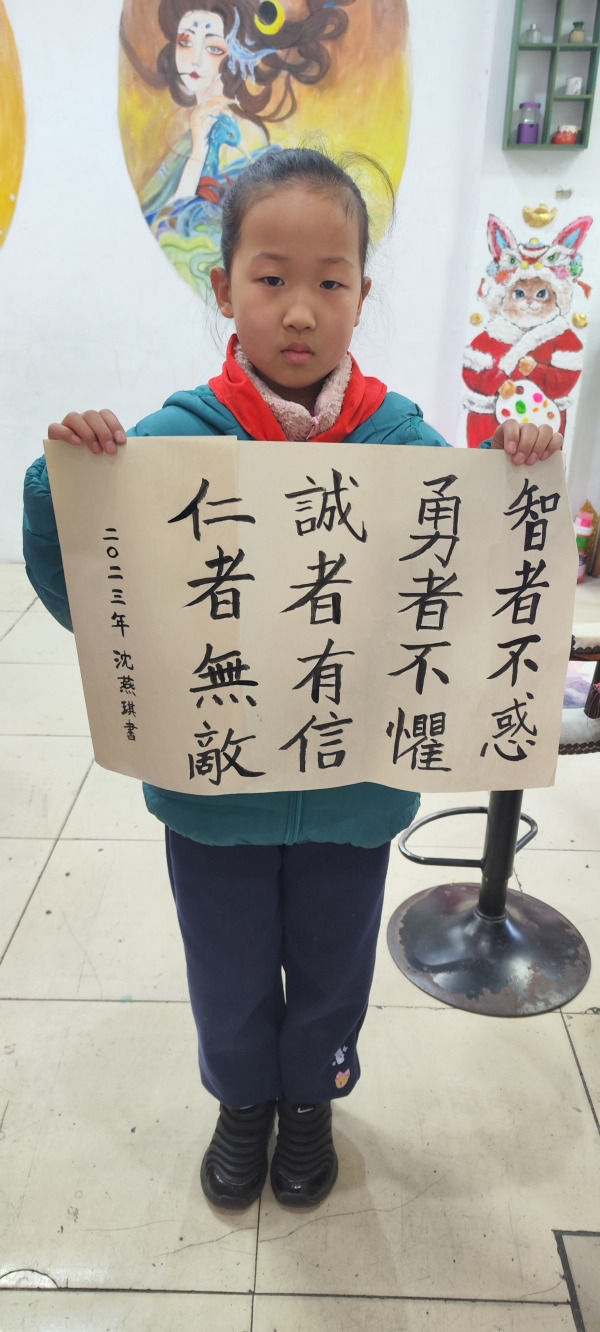 智者不惑
勇者不懼
誠者有信
仁者無敵
二〇二三年 沈燕琪書